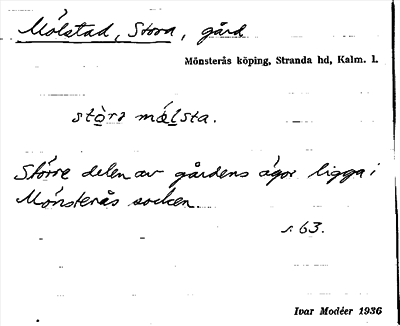 Mölstad, Stora, gård
Mönsterås köping, Stranda hd, Kalm. l.
stòrɑ mǿlsta.
Större delen av gårdens ägor ligga i
Mönsterås socken.
s. 63.
Ivar Modéer 1936